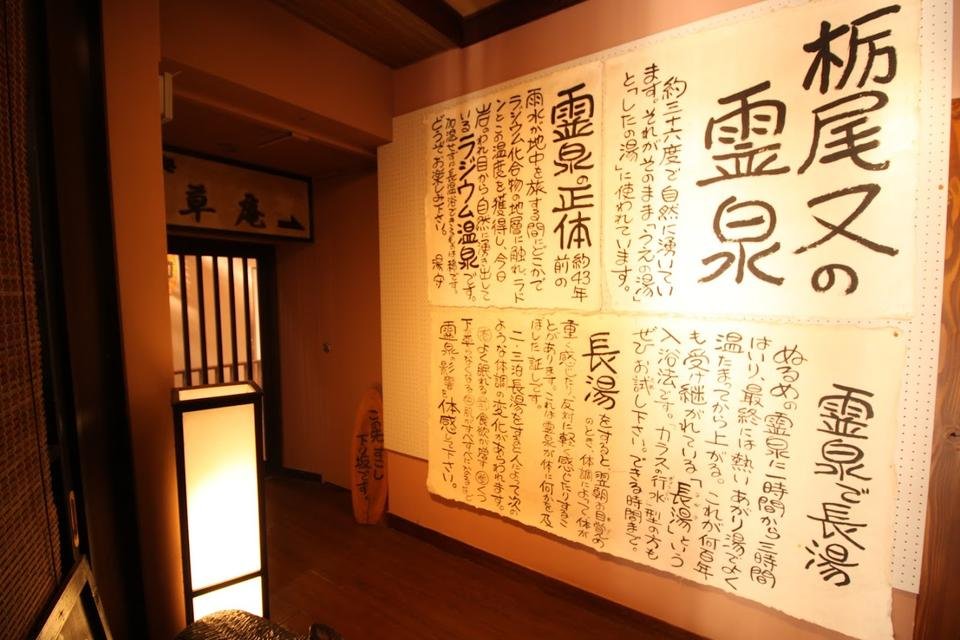 栃尾又の
霊泉
約三十六度で自然に湧いてい
ます。それがそのまま「うえの湯」
とっ「したの湯」に使われています。
霊泉の正体 約43年
前の
雨水が地中を旅する間にどこかで
ラジウム化合物の地層に触れ、ラド
ンとこの温度を獲得し、今日
岩のわれ目から自然に湧き出して
いるラジウム温泉です。
どうぞ、お楽しみ下さい。
霊泉で長湯
ぬるめの霊泉に一時間から三時間
はいり、最終には熱いあがり湯でよく
温たまってから上がる。これが何百年
も受け継がれている「長湯」という
入浴法です。カラスの行水型の方も
ぜひお試し下さい。できる時間まで。
長湯をすると翌朝の目覚め
のとき、体調によって体が
重く感じたり、反対に軽く感じたりするこ
とがあります。これは霊泉が体に何かを及
ぼした証しです。
二・三泊長湯をすると人によって次の
ような体調の変化があらわれます。
霊泉の影響を体感して下さい。
草庵
この先すこし
下り坂です。